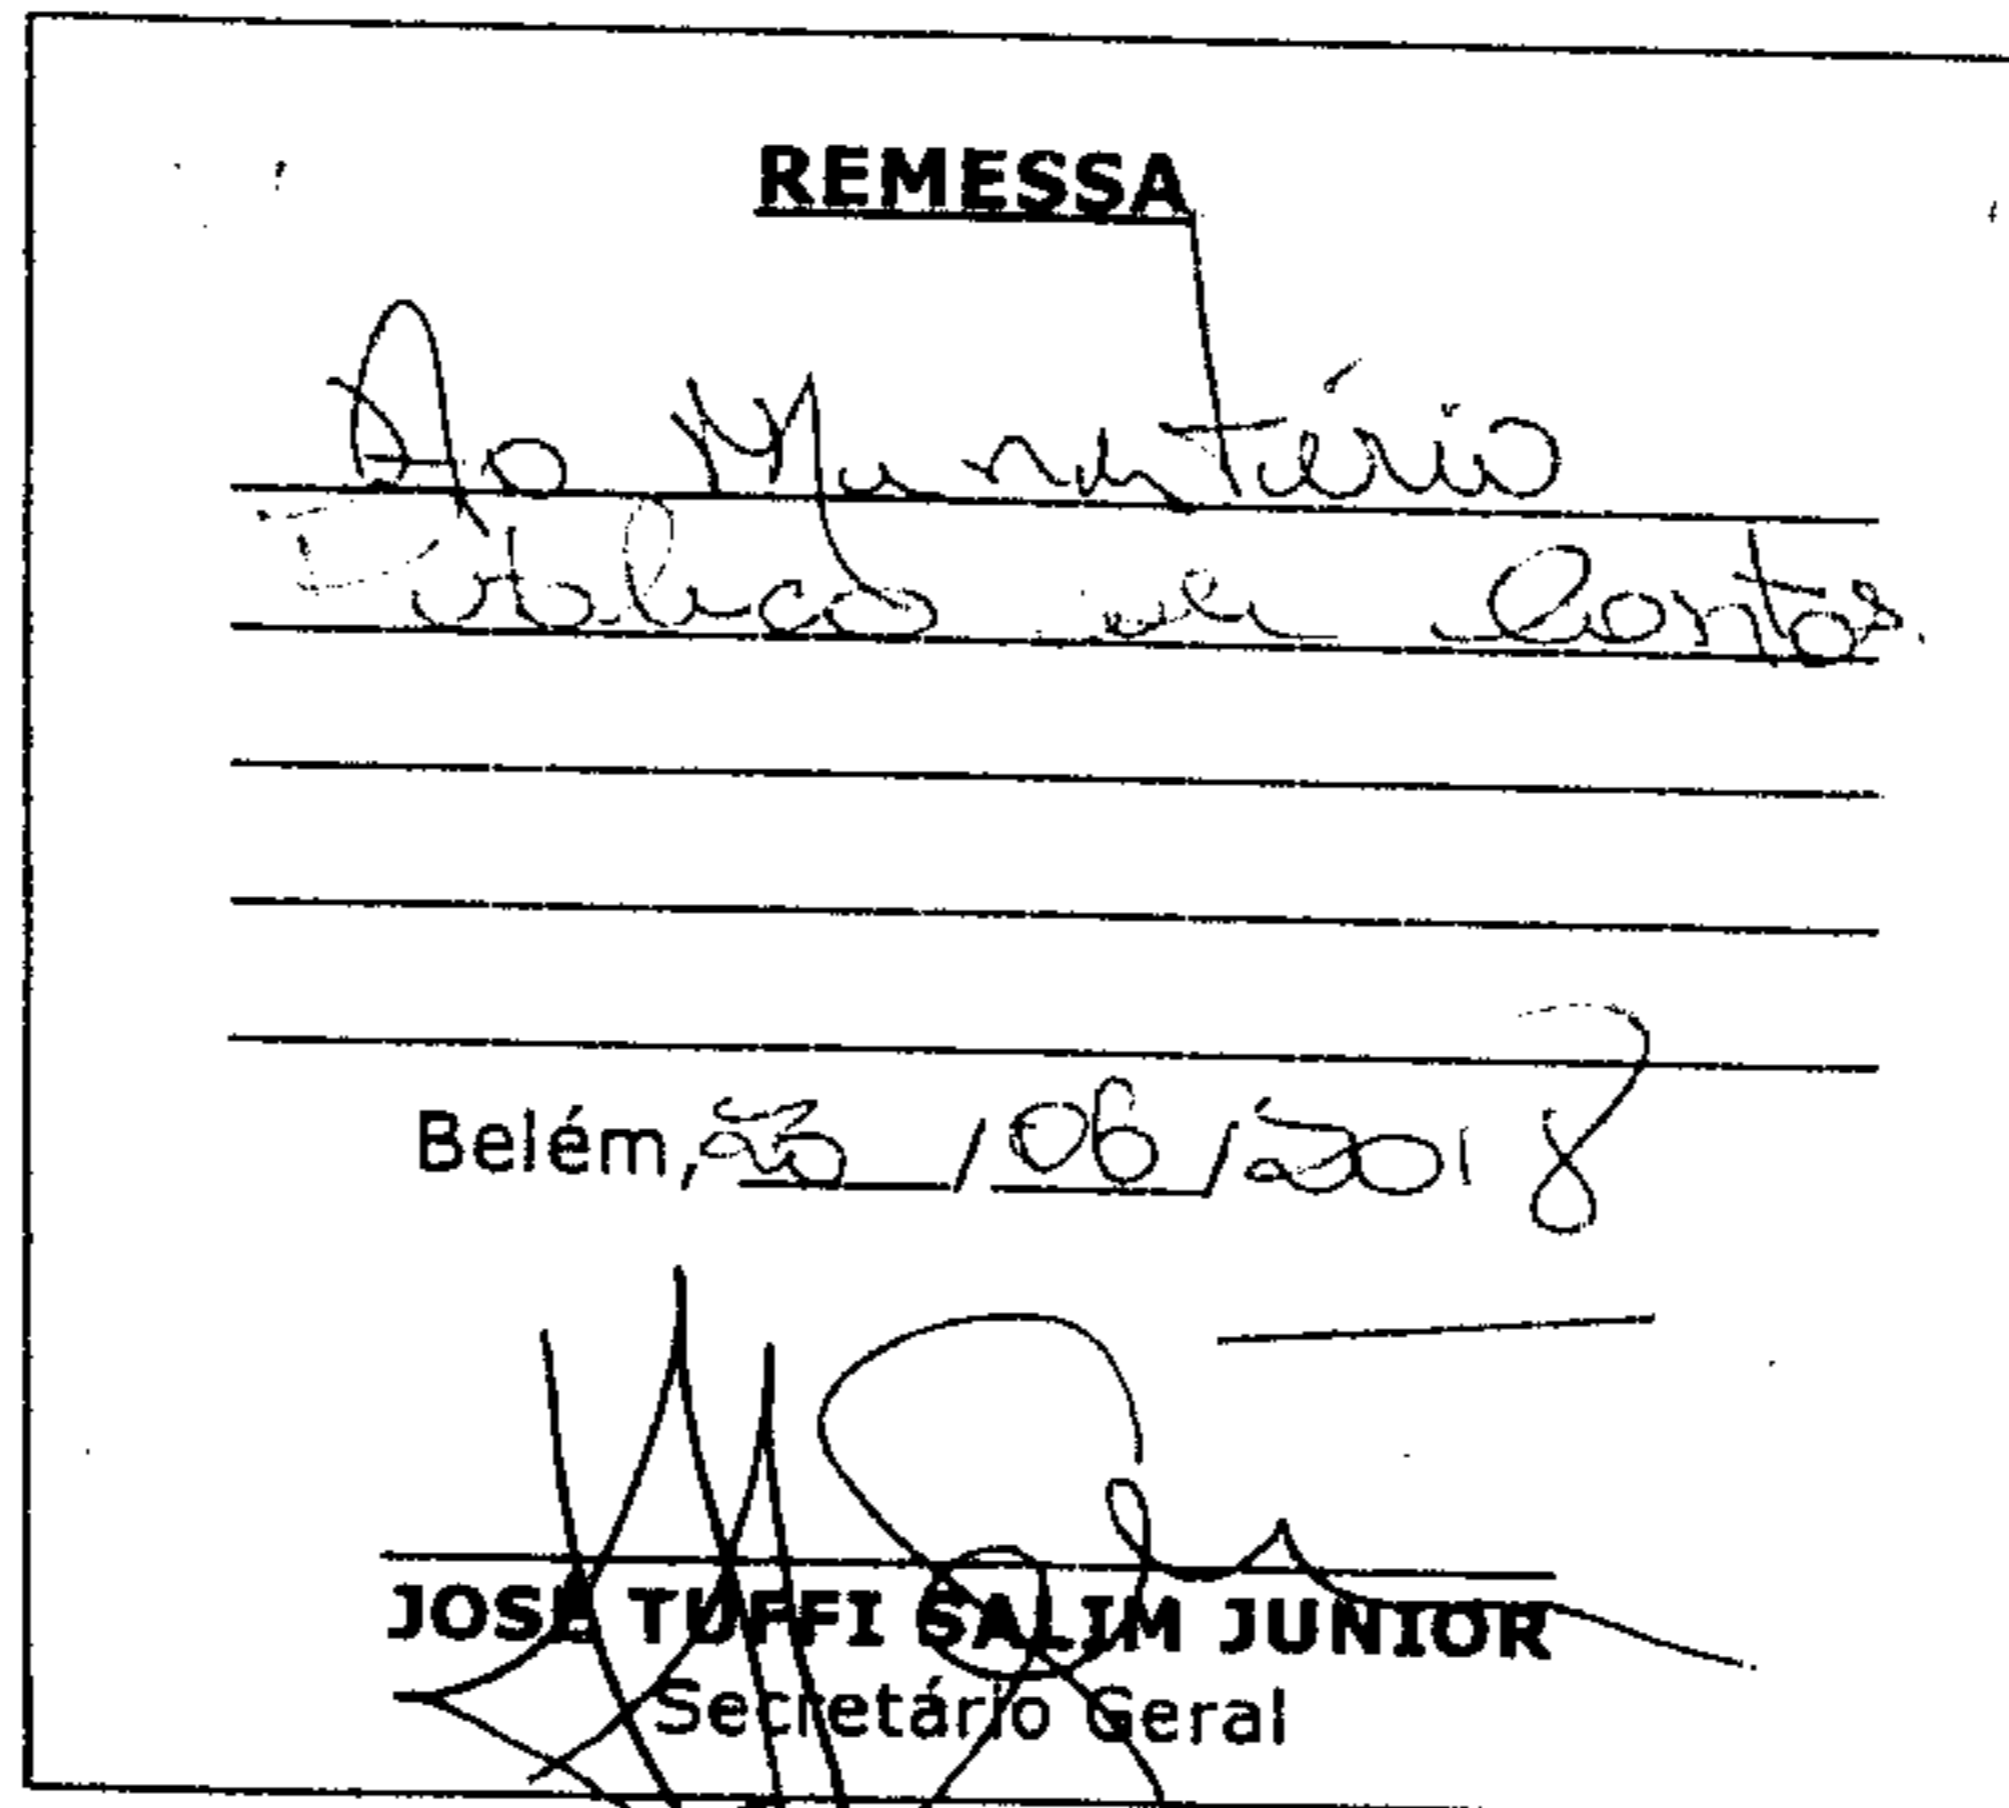 REMESSA
Ao Ministério
Público de Contas.
Belém, /06/2018
JOSÉ TUFFI SALIM JUNIOR
Secretário Geral